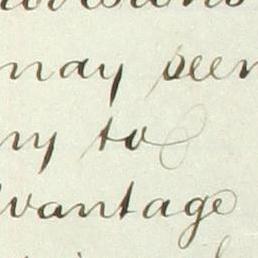 may seem
ny to
dvantage